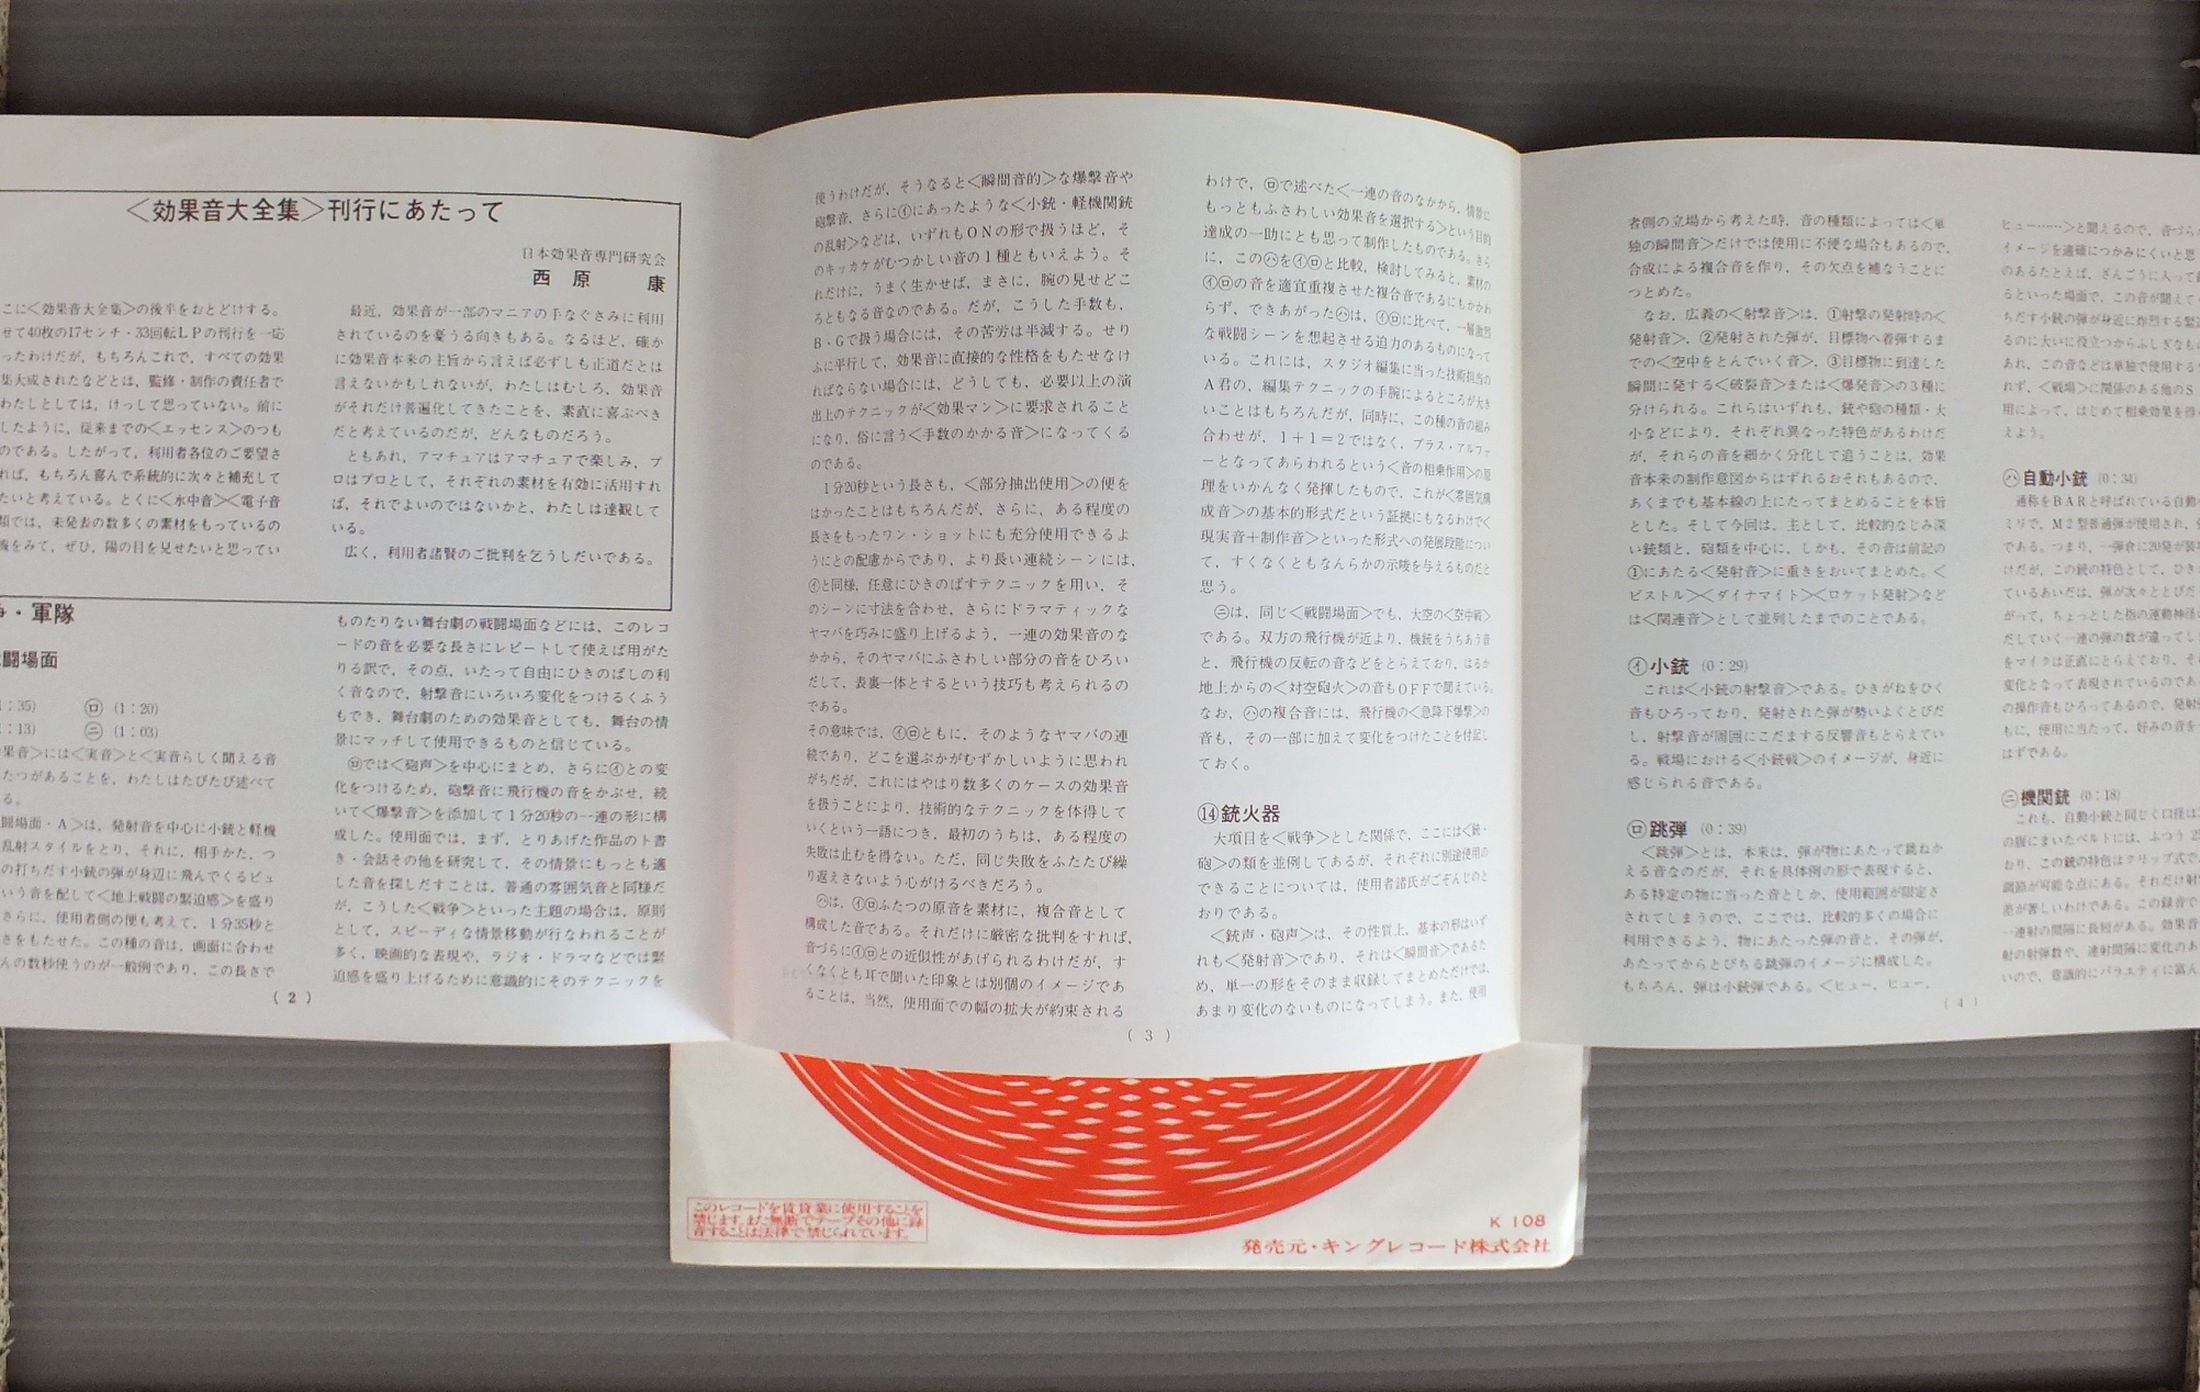 ＜効果音大全集＞刊行にあたって
日本効果音専門研究会
西原 康
こに＜効果音大全集＞の後半をおとどけする。
せて40枚の17センチ・33回転LPの刊行を一応
ったわけだが、もちろんこれで、すべての効果
集大成されたなどとは、監修・制作の責任者で
わたしとしては、けっして思っていない。前に
したように、従来までの＜エッセンス＞のつも
のである。したがって、利用者各位のご要望さ
れば、もちろん喜んで系統的に次々と補充して
たいと考えている。とくに＜水中音＞＜電子音
類では、未発表の数多くの素材をもっているの
機をみて、ぜひ、陽の目を見せたいと思ってい
最近、効果音が一部のマニアの手なぐさみに利用
されているのを憂うる向きもある。なるほど、確か
に効果音本来の主旨から言えば必ずしも正道だとは
言えないかもしれないが、わたしはむしろ、効果音
がそれだけ普遍化してきたことを、素直に喜ぶべき
だと考えているのだが、どんなものだろう。
ともあれ、アマチュアはアマチュアで楽しみ、プ
ロはプロとして、それぞれの素材を有効に活用すれ
ば、それでよいのではないかと、わたしは達観して
いる。
広く、利用者諸賢のご批判を乞うしだいである。
・軍隊
闘場面
:35) ㋺ (1:20)
:13) ㊁ (1:03)
果音＞には＜実音＞と＜実音らしく聞える音
たつがあることを、わたしはたびたび述べて
る。
闘場面・A＞は、発射音を中心に小銃と軽機
乱射スタイルをとり、それに、相手かた、つ
の打ちだす小銃の弾が身辺に飛んでくるビュ
いう音を配して＜地上戦闘の緊迫感＞を盛り
さらに、使用者側の便も考えて、1分35秒と
さをもたせた。この種の音は、画面に合わせ
んの数秒使うのが一般例であり、この長さで
ものたりない舞台劇の戦闘場面などには、このレコ
ードの音を必要な長さにレピートして使えば用がた
りる訳で、その点、いたって自由にひきのばしの利
く音なので、射撃音にいろいろ変化をつけるくふう
もでき、舞台劇のための効果音としても、舞台の情
景にマッチして使用できるものと信じている。
㋺では＜砲声＞を中心にまとめ、さらに㋑との変
化をつけるため、砲撃音に飛行機の音をかぶせ、続
いて＜爆撃音＞を添加して1分20秒の一連の形に構
成した。使用面では、まず、とりあげた作品のト書
き・会話その他を研究して、その情景にもっとも適
した音を探しだすことは、普通の雰囲気音と同様だ
が、こうした＜戦争＞といった主題の場合は、原則
として、スピーディな情景移動が行なわれることが
多く、映画的な表現や、ラジオ・ドラマなどでは緊
迫感を盛り上げるために意識的にそのテクニックを
( 2 )
使うわけだが、そうなると＜瞬間音的＞な爆撃音や
砲撃音、さらに㋑にあったような＜小銃・軽機関銃
の乱射＞などは、いずれもONの形で扱うほど、そ
のキッカケがむつかしい音の1種ともいえよう。そ
れだけに、うまく生かせば、まさに、腕の見せどこ
ろともなる音なのである。だが、こうした手数も、
B・Gで扱う場合には、その苦労は半減する。せり
ふに平行して、効果音に直接的な性格をもたせなけ
ればならない場合には、どうしても、必要以上の演
出上のテクニックが＜効果マン＞に要求されること
になり、俗に言う＜手数のかかる音＞になってくる
のである。
1分20秒という長さも、＜部分抽出使用＞の便を
はかったことはもちろんだが、さらに、ある程度の
長さをもったワン・ショットにも充分使用できるよ
うにとの配慮からであり、より長い連続シーンには、
㋑と同様、任意にひきのばすテクニックを用い、そ
のシーンに寸法を合わせ、さらにドラマティックな
ヤマバを巧みに盛り上げるよう、一連の効果音のな
かから、そのヤマバにふさわしい部分の音をひろい
だして、表裏一体とするという技巧も考えられるの
である。
その意味では、㋑㋺ともに、そのようなヤマバの連
続であり、どこを選ぶかがむずかしいように思われ
がちだが、これにはやはり数多くのケースの効果音
を扱うことにより、技術的なテクニックを体得して
いくという一語につき、最初のうちは、ある程度の
失敗は止むを得ない。ただ、同じ失敗をふたたび繰
り返えさないよう心がけるべきだろう。
㋩は、㋑㋺ふたつの原音を素材に、複合音として
構成した音である。それだけに厳密な批判をすれば、
音づらに㋑㋺との近似性があげられるわけだが、す
くなくとも耳で聞いた印象とは別個のイメージであ
ることは、当然、使用面での幅の拡大が約束される
わけで、㋺で述べた＜一連の音のなかから、情景に
もっともふさわしい効果音を選択する＞という目的
達成の一助にとも思って制作したものである。さら
に、この㋩を㋑㋺と比較、検討してみると、素材の
㋑㋺の音を適宜重複させた複合音であるにもかかわ
らず、できあがった㋩は、㋑㋺に比べて、一層激烈
な戦闘シーンを想起させる迫力のあるものになって
いる。これには、スタジオ編集に当った技術担当の
A君の、編集テクニックの手腕によるところが大き
いことはもちろんだが、同時に、この種の音の組み
合わせが、1＋1＝2ではなく、プラス・アルファ
ーとなってあらわれるという＜音の相乗作用＞の原
理をいかんなく発揮したもので、これが＜雰囲気構
成音＞の基本的形式だという証拠にもなるわけで＜
現実音＋制作音＞といった形式への発展段階につい
て、すくなくともなんらかの示唆を与えるものだと
思う。
㊁は、同じ＜戦闘場面＞でも、大空の＜空中戦＞
である。双方の飛行機が近より、機銃をうちあう音
と、飛行機の反転の音などをとらえており、はるか
地上からの＜対空砲火＞の音もOFFで聞えている。
なお、㋩の複合音には、飛行機の＜急降下爆撃＞の
音も、その一部に加えて変化をつけたことを付記し
ておく。
⑭銃火器
大項目を＜戦争＞とした関係で、ここには＜銃・
砲＞の類を並例してあるが、それぞれに別途使用の
できることについては、使用者諸氏がごぞんじのと
おりである。
＜銃声・砲声＞は、その性質上、基本の形はいず
れも＜発射音＞であり、それは＜瞬間音＞であるた
め、単一の形をそのまま収録してまとめただけでは、
あまり変化のないものになってしまう。また、使用
( 3 )
者側の立場から考えた時、音の種類によっては＜単
独の瞬間音＞だけでは使用に不便な場合もあるので、
合成による複合音を作り、その欠点を補なうことに
つとめた。
なお、広義の＜射撃音＞は、①射撃の発射時の＜
発射音＞、②発射された弾が、目標物へ着弾するま
での＜空中をとんでいく音＞、③目標物に到達した
瞬間に発する＜破裂音＞または＜爆発音＞の3種に
分けられる。これらはいずれも、銃や砲の種類・大
小などにより、それぞれ異なった特色があるわけだ
が、それらの音を細かく分化して追うことは、効果
音本来の制作意図からはずれるおそれもあるので、
あくまでも基本線の上にたってまとめることを本旨
とした。そして今回は、主として、比較的なじみ深
い銃類と、砲類を中心に、しかも、その音は前記の
①にあたる＜発射音＞に重きをおいてまとめた。＜
ピストル＞＜ダイナマイト＞＜ロケット発射＞など
は＜関連音＞として並列したまでのことである。
㋑小銃 (0：29)
これは＜小銃の射撃音＞である。ひきがねをひく
音もひろっており、発射された弾が勢いよくとびだ
し、射撃音が周囲にこだまする反響音もとらえてい
る。戦場における＜小銃戦＞のイメージが、身近に
感じられる音である。
㋺跳弾 (0：39)
＜跳弾＞とは、本来は、弾が物にあたって跳ねか
える音なのだが、それを具体例の形で表現すると、
ある特定の物に当った音としか、使用範囲が限定さ
されてしまうので、ここでは、比較的多くの場合に
利用できるよう、物にあたった弾の音と、その弾が、
あたってからとびちる跳弾のイメージに構成した。
もちろん、弾は小銃弾である。＜ヒュー、ヒュー、
( 4 )
ヒュー……＞と聞えるので、音づら
イメージを適確につかみにくいと思
のあるたとえば、ざんごうに入って
るといった場面で、この音が聞えて
ちだす小銃の弾が身近に炸烈する緊
るのに大いに役立つからふしぎなもの
あれ、この音などは単独で使用する
れず、＜戦場＞に関係のある他のS
用によって、はじめて相乗効果を得
えよう。
㋩自動小銃 (0：34)
通称をBARと呼ばれている自動
ミリで、M2型普通弾が使用され、
である。つまり、一弾倉に20発が装
けだが、この銃の特色として、ひき
ているあいだは、弾が次々ととびだ
がって、ちょっとした指の運動神経
だしていく一連の弾の数が違ってし
をマイクは正直にとらえており、それ
変化となって表現されているのであ
の操作音もひろってあるので、発射
もに、使用に当たって、好みの音を
はずである。
㊁機関銃 (0：18)
これも、自動小銃と同じく口径は
の腹にまいたベルトには、ふつう
おり、この銃の特色はクリップ式で
調節が可能な点にある。それだけ射
差が著しいわけである。この録音で
一連射の間隔に長短がある。効果音
射の射弾数や、連射間隔に変化のあ
いので、意識的にバラエティに富ん
このレコードを賃貸業に使用することを
禁じます。また無断でテープその他に録
音することは法律で禁じられています。
K 108
発売元・キングレコード株式会社